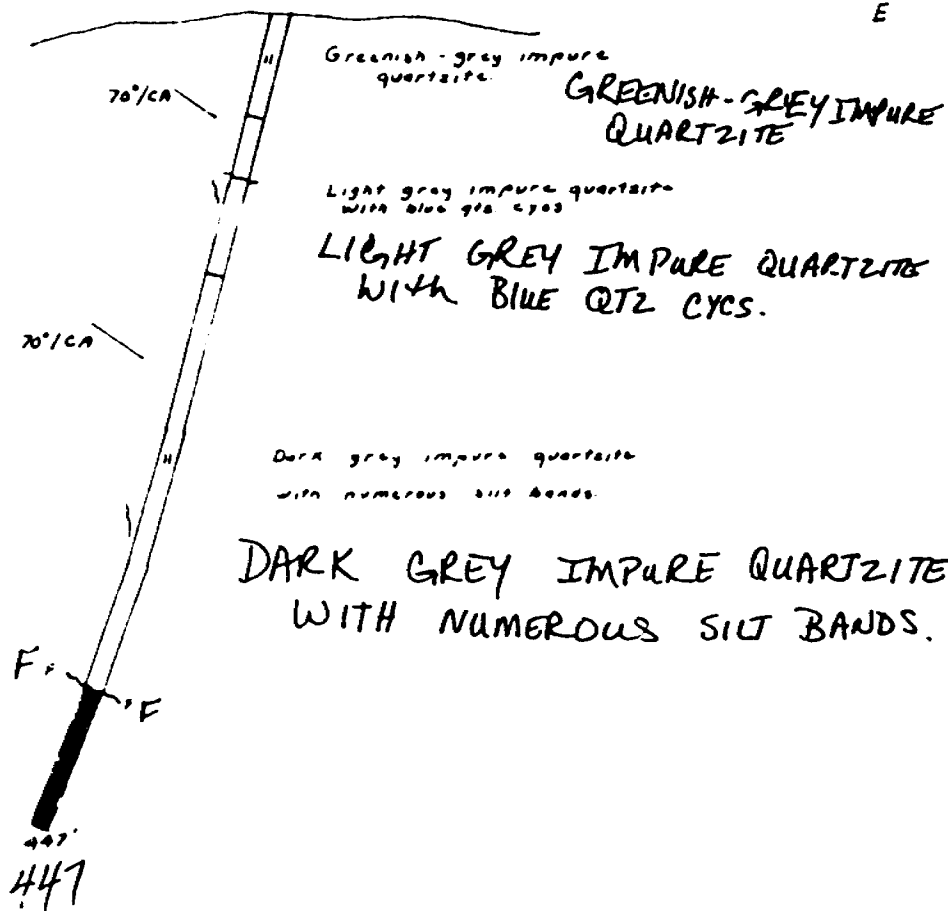 E
Greenish-grey impure
quartzite.
GREENISH-GREY IMPURE
QUARTZITE
70°/CA
"
Light grey impure quartzite
with blue qtz eyes
LIGHT GREY IMPURE QUARTZITE
WITH BLUE QTZ CYCS.
70°/CA
"
Dark grey impure quartzite
with numerous silt bands.
DARK GREY IMPURE QUARTZITE
WITH NUMEROUS SILT BANDS.
F F
F
447'
447